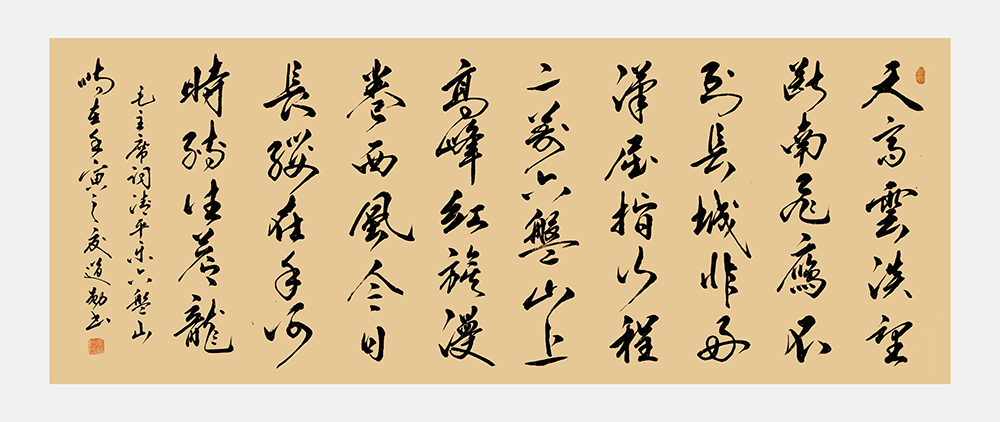 天高雲淡望
斷南飛鴈不
到長城非好
漢屈指行程
二萬六盤山上
高峰紅旗漫
卷西風今日
長纓在手何
時縛住蒼龍
毛主席詞清平樂六盤山
時在壬寅之夏道勤書